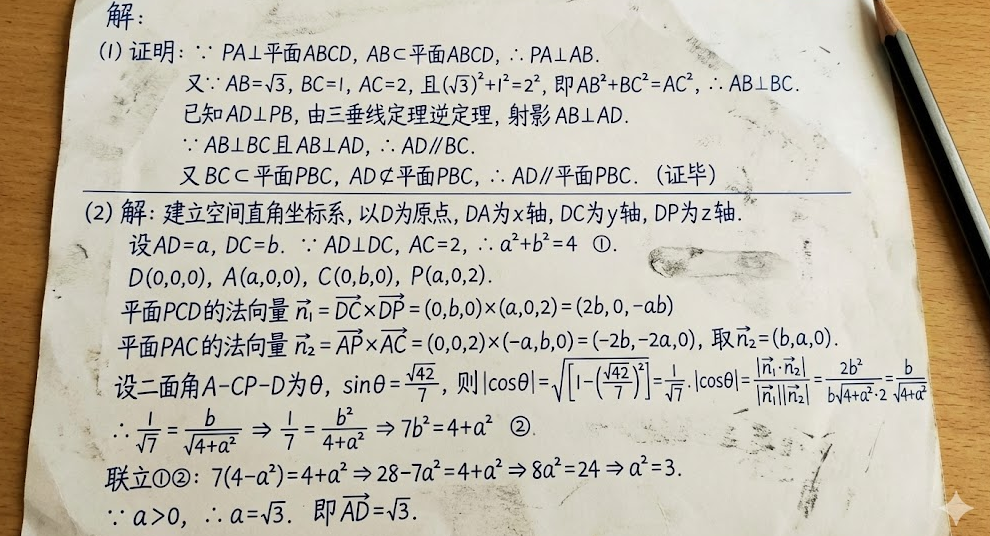 解:
(1) 证明: ∵ PA⊥平面ABCD, AB⊂平面ABCD, ∴ PA⊥AB.
又∵ AB=√3, BC=1, AC=2, 且(√3)²+1²=2², 即AB²+BC²=AC², ∴ AB⊥BC.
已知AD⊥PB, 由三垂线定理逆定理, 射影AB⊥AD.
∵ AB⊥BC且AB⊥AD, ∴ AD∥BC.
又BC⊂平面PBC, AD⊄平面PBC, ∴ AD∥平面PBC. (证毕)
(2) 解: 建立空间直角坐标系, 以D为原点, DA为x轴, DC为y轴, DP为z轴.
设AD=a, DC=b. ∵ AD⊥DC, AC=2, ∴ a²+b²=4 ①.
D(0,0,0), A(a,0,0), C(0,b,0), P(a,0,2).
平面PCD的法向量 n⃗₁=DC→×DP→=(0,b,0)×(a,0,2)=(2b,0,-ab)
平面PAC的法向量 n⃗₂=AP→×AC→=(0,0,2)×(-a,b,0)=(-2b,-2a,0), 取n⃗₂=(b,a,0).
设二面角A-CP-D为θ, sinθ=√42/7, 则|cosθ|=√[1-(√42/7)²]=1/√7. |cosθ|=|n⃗₁·n⃗₂|/|n⃗₁||n⃗₂|=2b²/(b√(4+a²)·2)=b/√(4+a²)
∴ 1/√7=b/√(4+a²) ⇒ 1/7=b²/(4+a²) ⇒ 7b²=4+a² ②.
联立①②: 7(4-a²)=4+a² ⇒ 28-7a²=4+a² ⇒ 8a²=24 ⇒ a²=3.
∵ a>0, ∴ a=√3. 即AD→=√3.